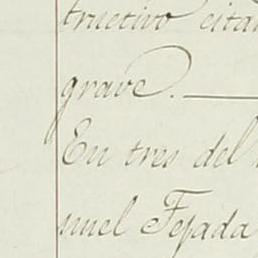 tructivo citan
grave.
En tres del
nuel Tejada